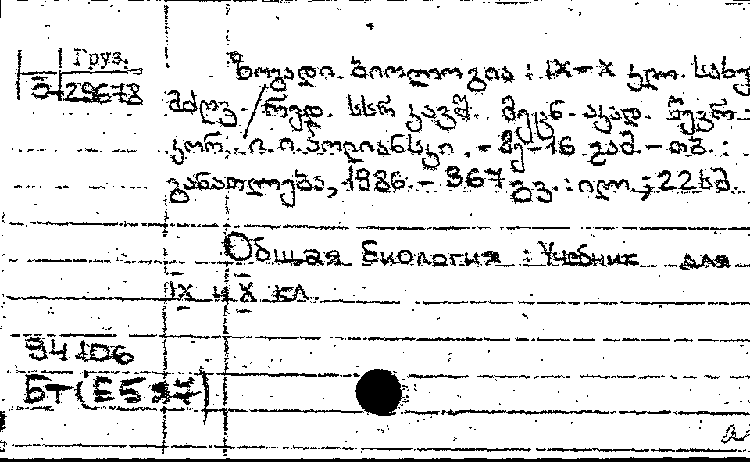 Груз.
29678
ზოგადი ბიოლოგია : IX-X კლ. სახე
მძღვ. რედ. სსრ კავშ. მეცნ. აკად. წევრ-
კორ. ი. ი. პოლიანსკი. - მე-16 გამ. - თბ. :
განათლება, 1986. - 367 გვ. : ილ. ; 22 სმ.
Общая биология : Учебник для
IX и X кл.
94106